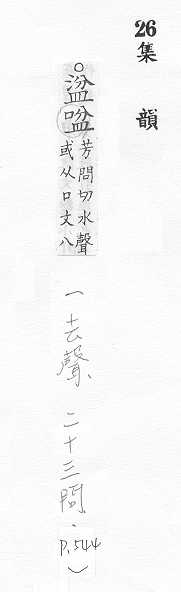 26 集韻
○湓 芳問切水聲
或从口文八
(去聲、二十三問、P.544)